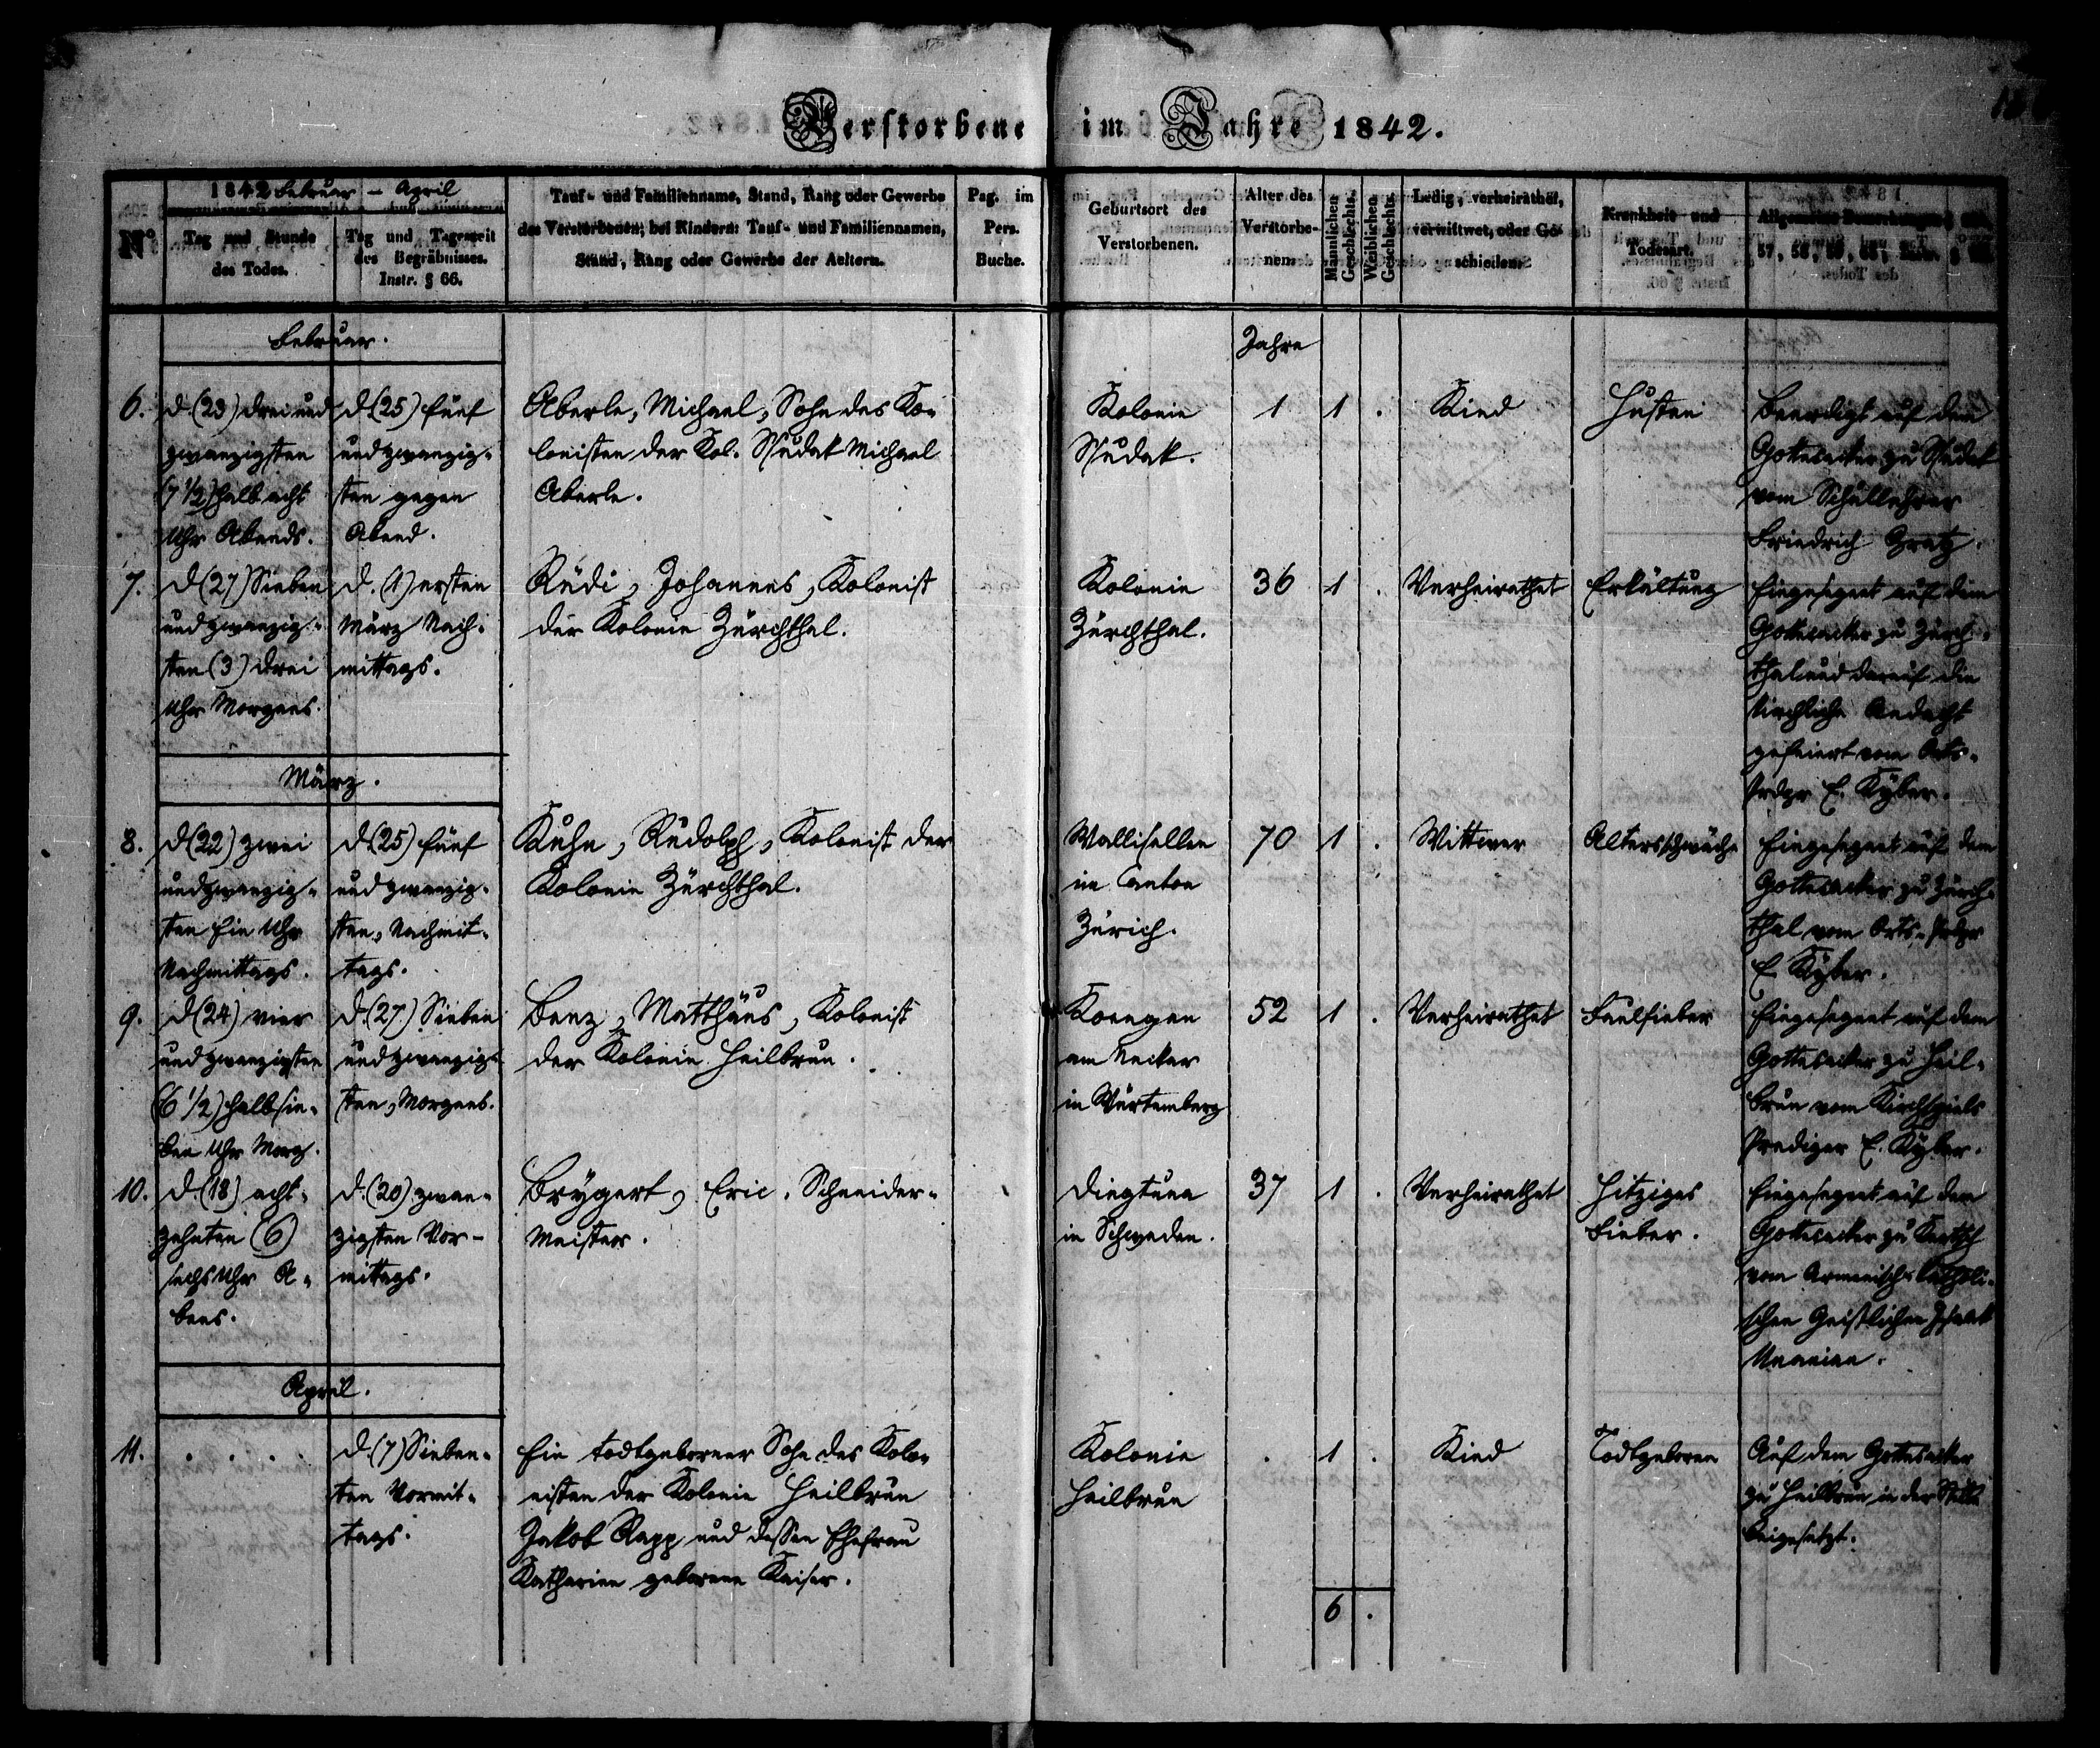 Verstorbene im Jahre 1842.
1842 Februar – April
No
Tag und Stunde
des Todes.
Tag und Tageszeit
des Begräbnisses.
Instr. § 66.
Tauf- und Familienname, Stand, Rang oder Gewerbe
des Verstorbenen; bei Kindern: Tauf- und Familiennamen,
Stand, Rang oder Gewerbe der Aeltern.
Pag. im
Pers.
Buche.
Geburtsort des
Verstorbenen.
Alter des
Verstorbe-
nen
Männlichen
Geschlechts.
Weiblichen
Geschlechts.
Ledig, verheirathet,
verwittwet, oder Ge-
schieden.
Krankheit und
Todesart.
Allgemeine Bemerkungen
Februar.
Jahre
6.
d (23) drei und
zwanzigsten
(7 1/2) halb acht
Uhr Abends.
d (25) fünf
und zwanzig-
sten gegen
Abend.
Aberle, Michael, Sohn des Ko-
lonisten der Kol. Sudak Michael
Aberle.
Kolonie
Sudak.
1
1
.
Kind
Husten
Beerdigt auf dem
Gottesacker zu Sudak
vom Schullehrer
Friedrich Gratz.
7.
d (27) Sieben
und zwanzig-
sten (3) drei
Uhr Morgens.
d. (1) ersten
März Nach-
mittags.
Rudi, Johannes, Kolonist
der Kolonie Zürchthal.
Kolonie
Zürchthal.
36
1
.
Verheirathet
Erkältung
Eingesegnet auf dem
Gottesacker zu Zürch-
thal und darauf die
kirchliche Andacht
gefeiert vom Orts-
Predgr E. Kyber.
März.
8.
d (22) zwei
und zwanzig-
sten Ein Uhr
Nachmittags.
d (25) fünf
und zwanzig-
sten, Nachmit-
tags.
Kuhn, Rudolph, Kolonist der
Kolonie Zürchthal.
Wallisellen
im Canton
Zürich.
70
1
.
Wittwer
Altersschwäche
Eingesegnet auf dem
Gottesacker zu Zürch-
thal vom Orts-Predgr
E. Kyber.
9.
d (24) vier
und zwanzigsten
(6 1/2) halb sie-
ben Uhr Morg.
d. (27) Sieben
und zwanzig-
sten, Morgens.
Benz, Matthäus, Kolonist
der Kolonie Heilbrun.
Koengen
am Neckar
in Würtemberg
52
1
.
Verheirathet
Faulfieber
Eingesegnet auf dem
Gottesacker zu Heil-
brun vom Kirchspiels
Prediger E. Kyber.
10.
d. (18) acht-
zehnten (6)
sechs Uhr A-
bens.
d. (20) zwan-
zigsten Vor-
mittags.
Brygert, Eric. Schneider-
Meister.
Diegtuna
in Schweden.
37
1
.
Verheirathet
Hitziges
Fieber.
Eingesegnet auf dem
Gottesacker zu Kertsch
vom Armenisch-Katholi-
schen Geistlichen Isaak
April.
11.
. . . .
d. (7) Sieben-
ten Vormit-
tags.
Ein todtgeborner Sohn des Kolo-
nisten der Kolonie Heilbrun
Jakob Rapp und dessen Ehefrau
Katharina geborene Kaiser.
Kolonie
Heilbrun
.
1
.
Kind
Todtgeboren
Auf dem Gottesacker
zu Heilbrun in der Stille
beigesetzt.
6
.